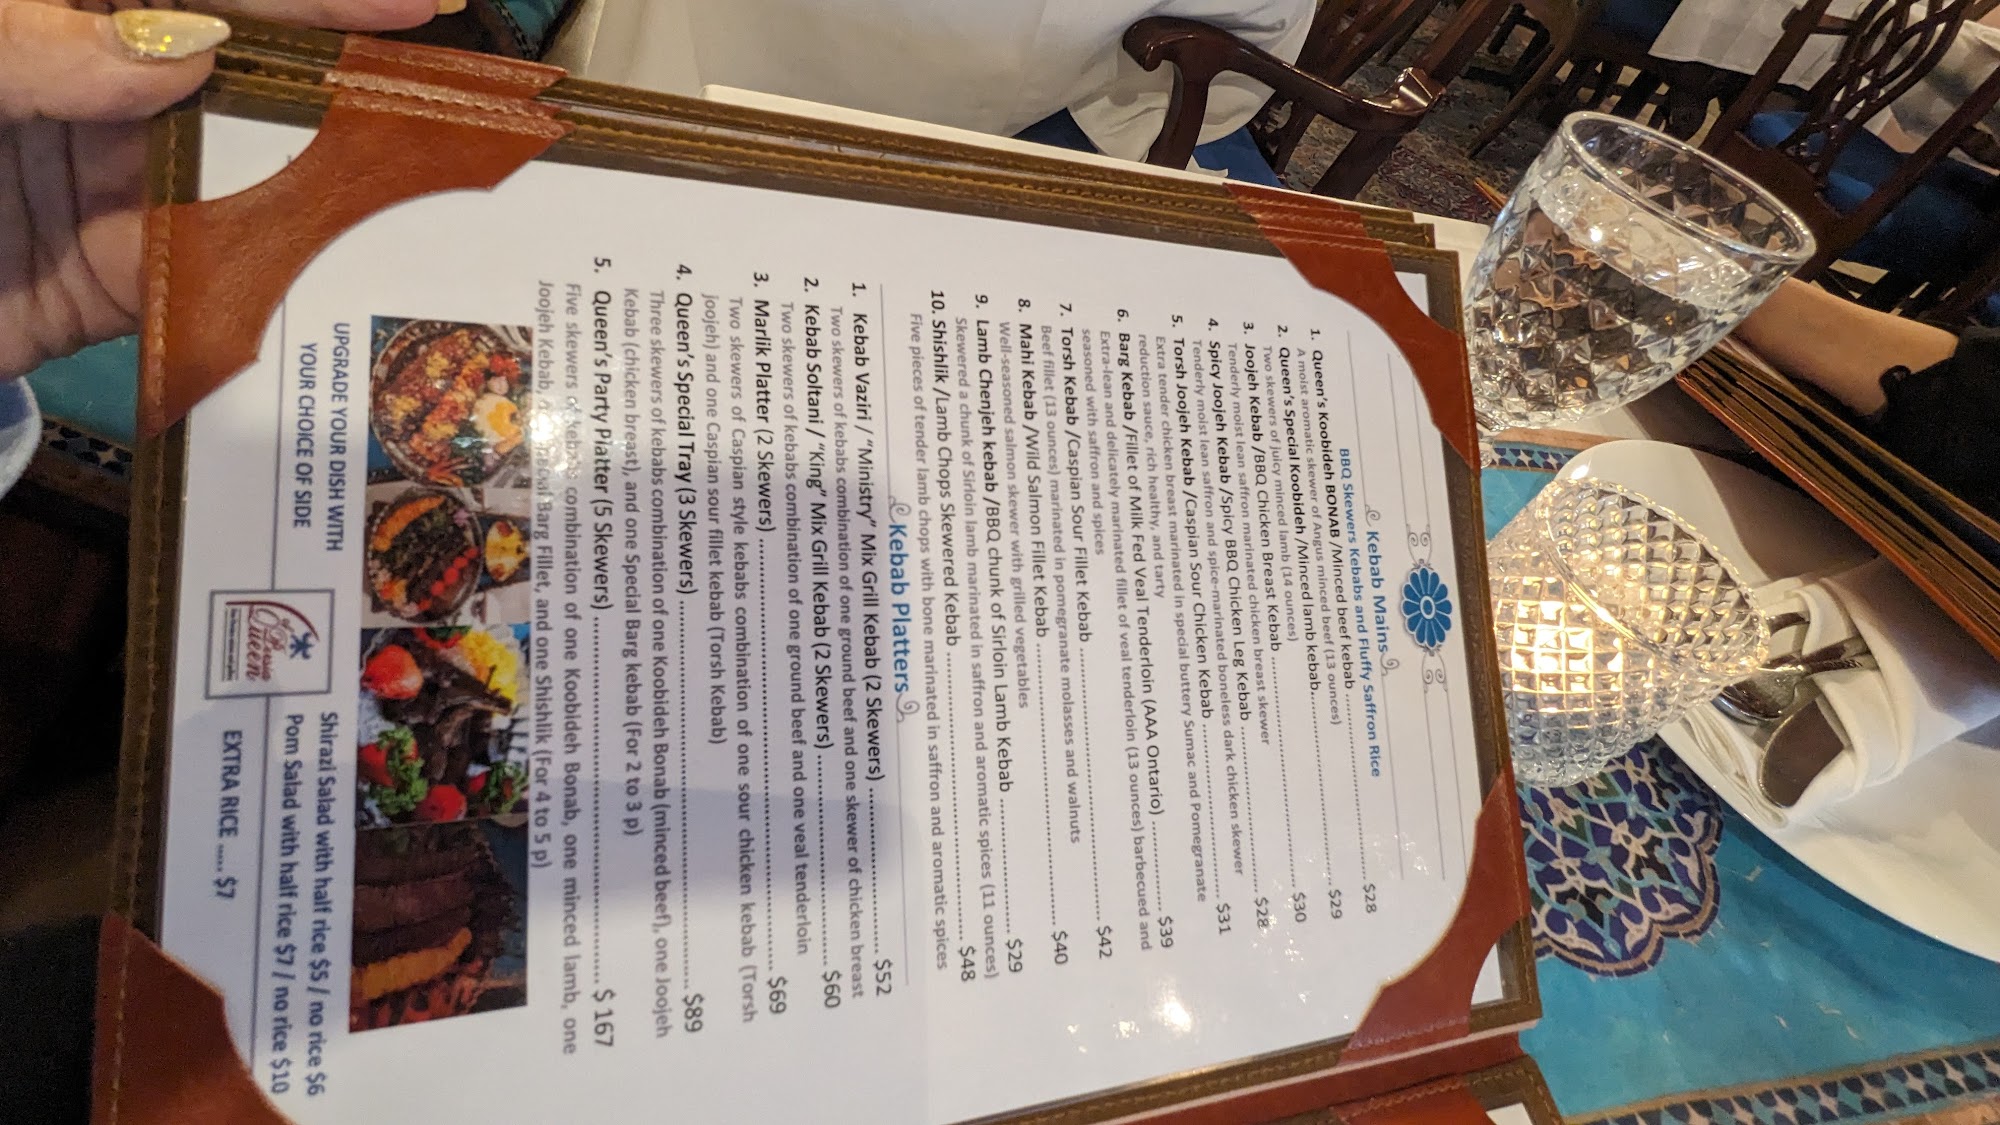 Kebab Mains
BBQ Skewers Kebabs and Fluffy Saffron Rice
1. Queen's Koobideh BONAB /Minced beef kebab .......... $28
A moist aromatic skewer of Angus minced beef (13 ounces)
2. Queen's Special Koobideh /Minced lamb kebab.......... $29
Two skewers of juicy minced lamb (14 ounces)
3. Joojeh Kebab /BBQ Chicken Breast Kebab .......... $30
Tenderly moist lean saffron marinated chicken breast skewer
4. Spicy Joojeh Kebab /Spicy BBQ Chicken Leg Kebab .......... $28
Tenderly moist lean saffron and spice-marinated boneless dark chicken skewer
5. Torsh Joojeh Kebab /Caspian Sour Chicken Kebab .......... $31
Extra tender chicken breast marinated in special buttery Sumac and Pomegranate
reduction sauce, rich healthy, and tarty
6. Barg Kebab /Fillet of Milk Fed Veal Tenderloin (AAA Ontario) .......... $39
Extra-lean and delicately marinated fillet of veal tenderloin (13 ounces) barbecued and
seasoned with saffron and spices
7. Torsh Kebab /Caspian Sour Fillet Kebab .......... $42
Beef fillet (13 ounces) marinated in pomegranate molasses and walnuts
8. Mahi Kebab /Wild Salmon Fillet Kebab .......... $40
Well-seasoned salmon skewer with grilled vegetables
9. Lamb Chenjeh kebab /BBQ chunk of Sirloin Lamb Kebab .......... $29
Skewered a chunk of Sirloin lamb marinated in saffron and aromatic spices (11 ounces)
10. Shishlik /Lamb Chops Skewered Kebab .......... $48
Five pieces of tender lamb chops with bone marinated in saffron and aromatic spices
Kebab Platters
1. Kebab Vaziri / "Ministry" Mix Grill Kebab (2 Skewers) .......... $52
Two skewers of kebabs combination of one ground beef and one skewer of chicken breast
2. Kebab Soltani / "King" Mix Grill Kebab (2 Skewers) .......... $60
Two skewers of kebabs combination of one ground beef and one veal tenderloin
3. Marlik Platter (2 Skewers) .......... $69
Two skewers of Caspian style kebabs combination of one sour chicken kebab (Torsh
Joojeh) and one Caspian sour fillet kebab (Torsh Kebab)
4. Queen's Special Tray (3 Skewers) .......... $89
Three skewers of kebabs combination of one Koobideh Bonab (minced beef), one Joojeh
Kebab (chicken breast), and one Special Barg kebab (For 2 to 3 p)
5. Queen's Party Platter (5 Skewers) .......... $ 167
Five skewers of kebabs combination of one Koobideh Bonab, one minced lamb, one
Joojeh Kebab, one Special Barg Fillet, and one Shishlik (For 4 to 5 p)
UPGRADE YOUR DISH WITH
YOUR CHOICE OF SIDE
Queen of Persia
Shirazi Salad with half rice $5 / no rice $6
Pom Salad with half rice $7 / no rice $10
EXTRA RICE ..... $7